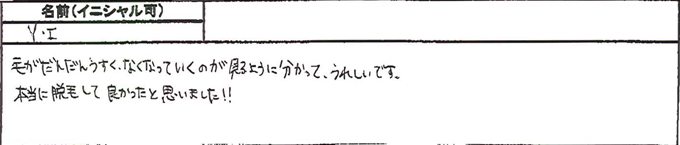 名前(イニシャル可)
Y・I
毛がだんだんうすく、なくなっていくのが見るように分かって、うれしいです。
本当に脱毛して良かったと思いました!!